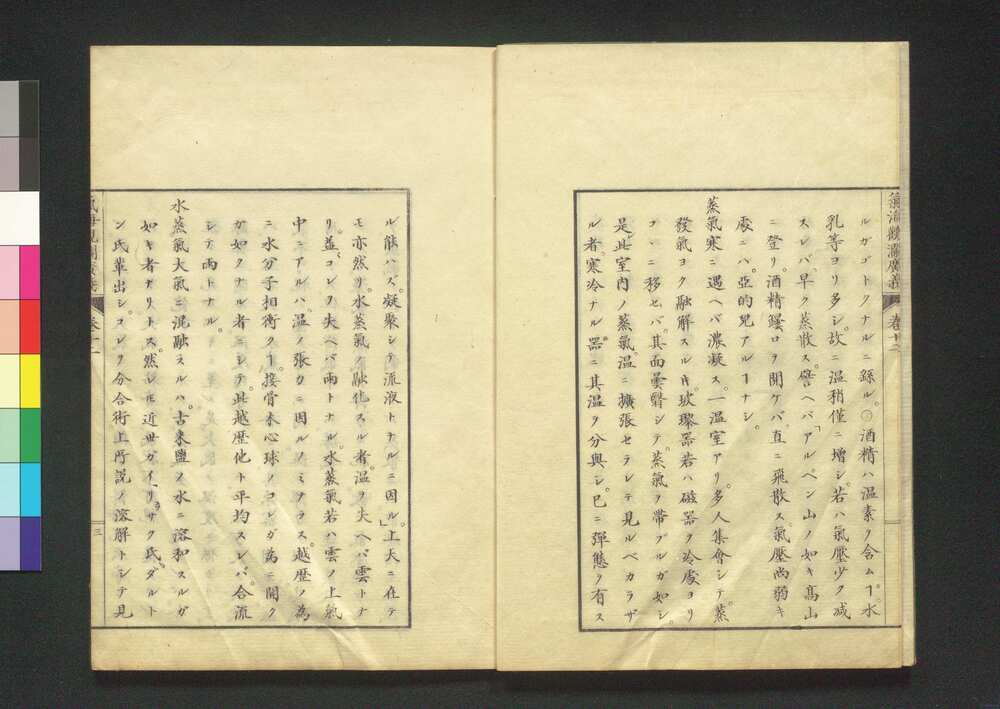 氣海觀瀾廣義
卷十二
ルガゴトクナルニ繇ル。〇酒精ハ温素ヲ含ムヿ。水
乳等ヨリ多シ。故ニ温稍僅ニ増シ。若ハ氣壓少ク減
スレバ。早ク蒸散ス。譬ヘバ「アルペン山ノ如キ高山
ニ登リ。酒精罎口ヲ開ケバ。直ニ飛散ス。氣壓尚弱キ
處ニハ。亞的兒アルヿナシ。
蒸氣寒ニ遇ヘバ濃凝ス。一温室アリ。多人集會シテ。蒸
發氣ヨク融解スルㇳキ。玻瓈器若ハ磁器ヲ冷處ヨリ
コヽニ移セバ。其面曇翳シテ。蒸氣ヲ帶ブルガ如シ。
是。此室内ノ蒸氣。温ニ擴張セラレテ見ルベカラザ
ル者。寒冷ナル器ニ其温ヲ分與シ。已ニ彈態ヲ有ス
ル能ハズ。凝聚シテ流液トナルニ因ル。」上天ニ在テ
モ亦然リ。水蒸氣ノ融化スル者。温ヲ失ヘバ雲トナ
リ。益コレヲ失ヘバ雨トナル。水蒸氣若ハ雲ノ上氣
中ニアルハ。温ノ張力ニ因ルノミナラス。越歴ノ為
ニ水分子相衝クヿ。接骨木心球ノコレガ為ニ開ク
ガ如クナル者ニシテ。此越歴他ト平均スレバ。合流
シテ雨トナル。
水蒸氣大氣ニ混融スルハ。古來鹽ノ水ニ溶和スルガ
如キ者ナリトス。然レモ近世ガイリサク氏。ダルト
ン氏輩出シ。コレヲ分合術上所説ノ溶解トシテ見
卷十二
三